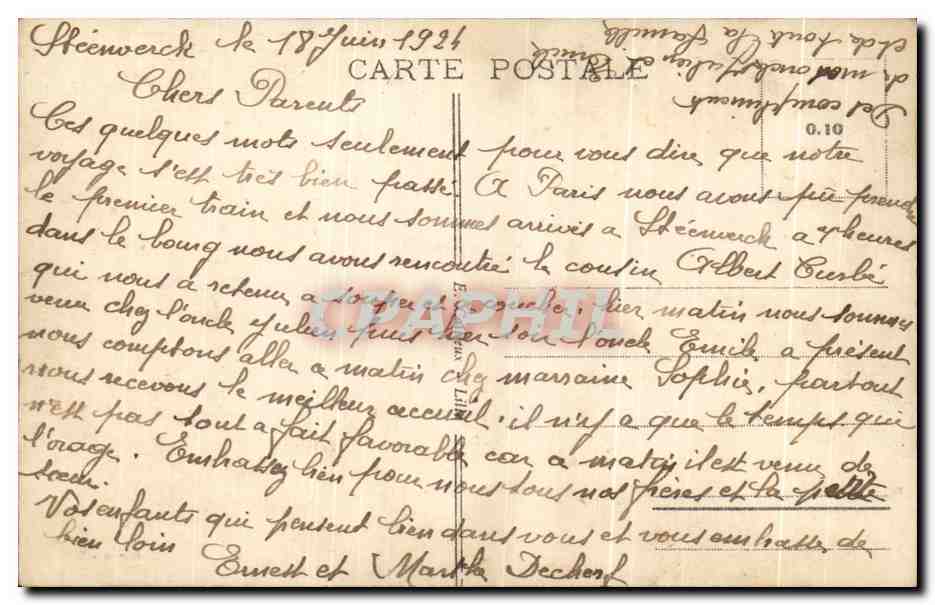 Stéenwerck le 18 Juin 1924
CARTE POSTALE
Chers Parents
Ces quelques mots seulement pour vous dire que notre
voyage s'est très bien passé. A Paris nous avons pu prendre
le premier train et nous sommes arrivés a Stéenwerck a 7 heures
dans le bourg nous avons rencontré le cousin Albert
qui nous a retenu a souper et a coucher, hier matin nous sommes
venu chez l'oncle Julien puis hier soir l'oncle Emile a présent
nous comptons aller a matin chez marraine Sophie, partout
nous recevons le meilleur accueil, il n'y a que le temps qui
n'est pas tout a fait favorable car a matin il est venu de
l'orage. Embrassez bien pour nous tous nos frères et la petite
sœur.
Vos enfants qui pensent bien dans vous et vous embrasse de
bien loin
Ernest et Martha Decherf
Des compliments
de mon oncle Julien et Emile
et de tout la famille
0.10
CPAPHIL
Lille